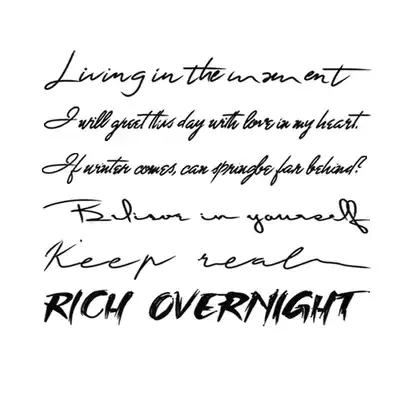 Living in the moment
I will greet this day with love in my heart.
If winter comes, can springbe far behind?
Believe in yourself
Keep real
RICH OVERNIGHT